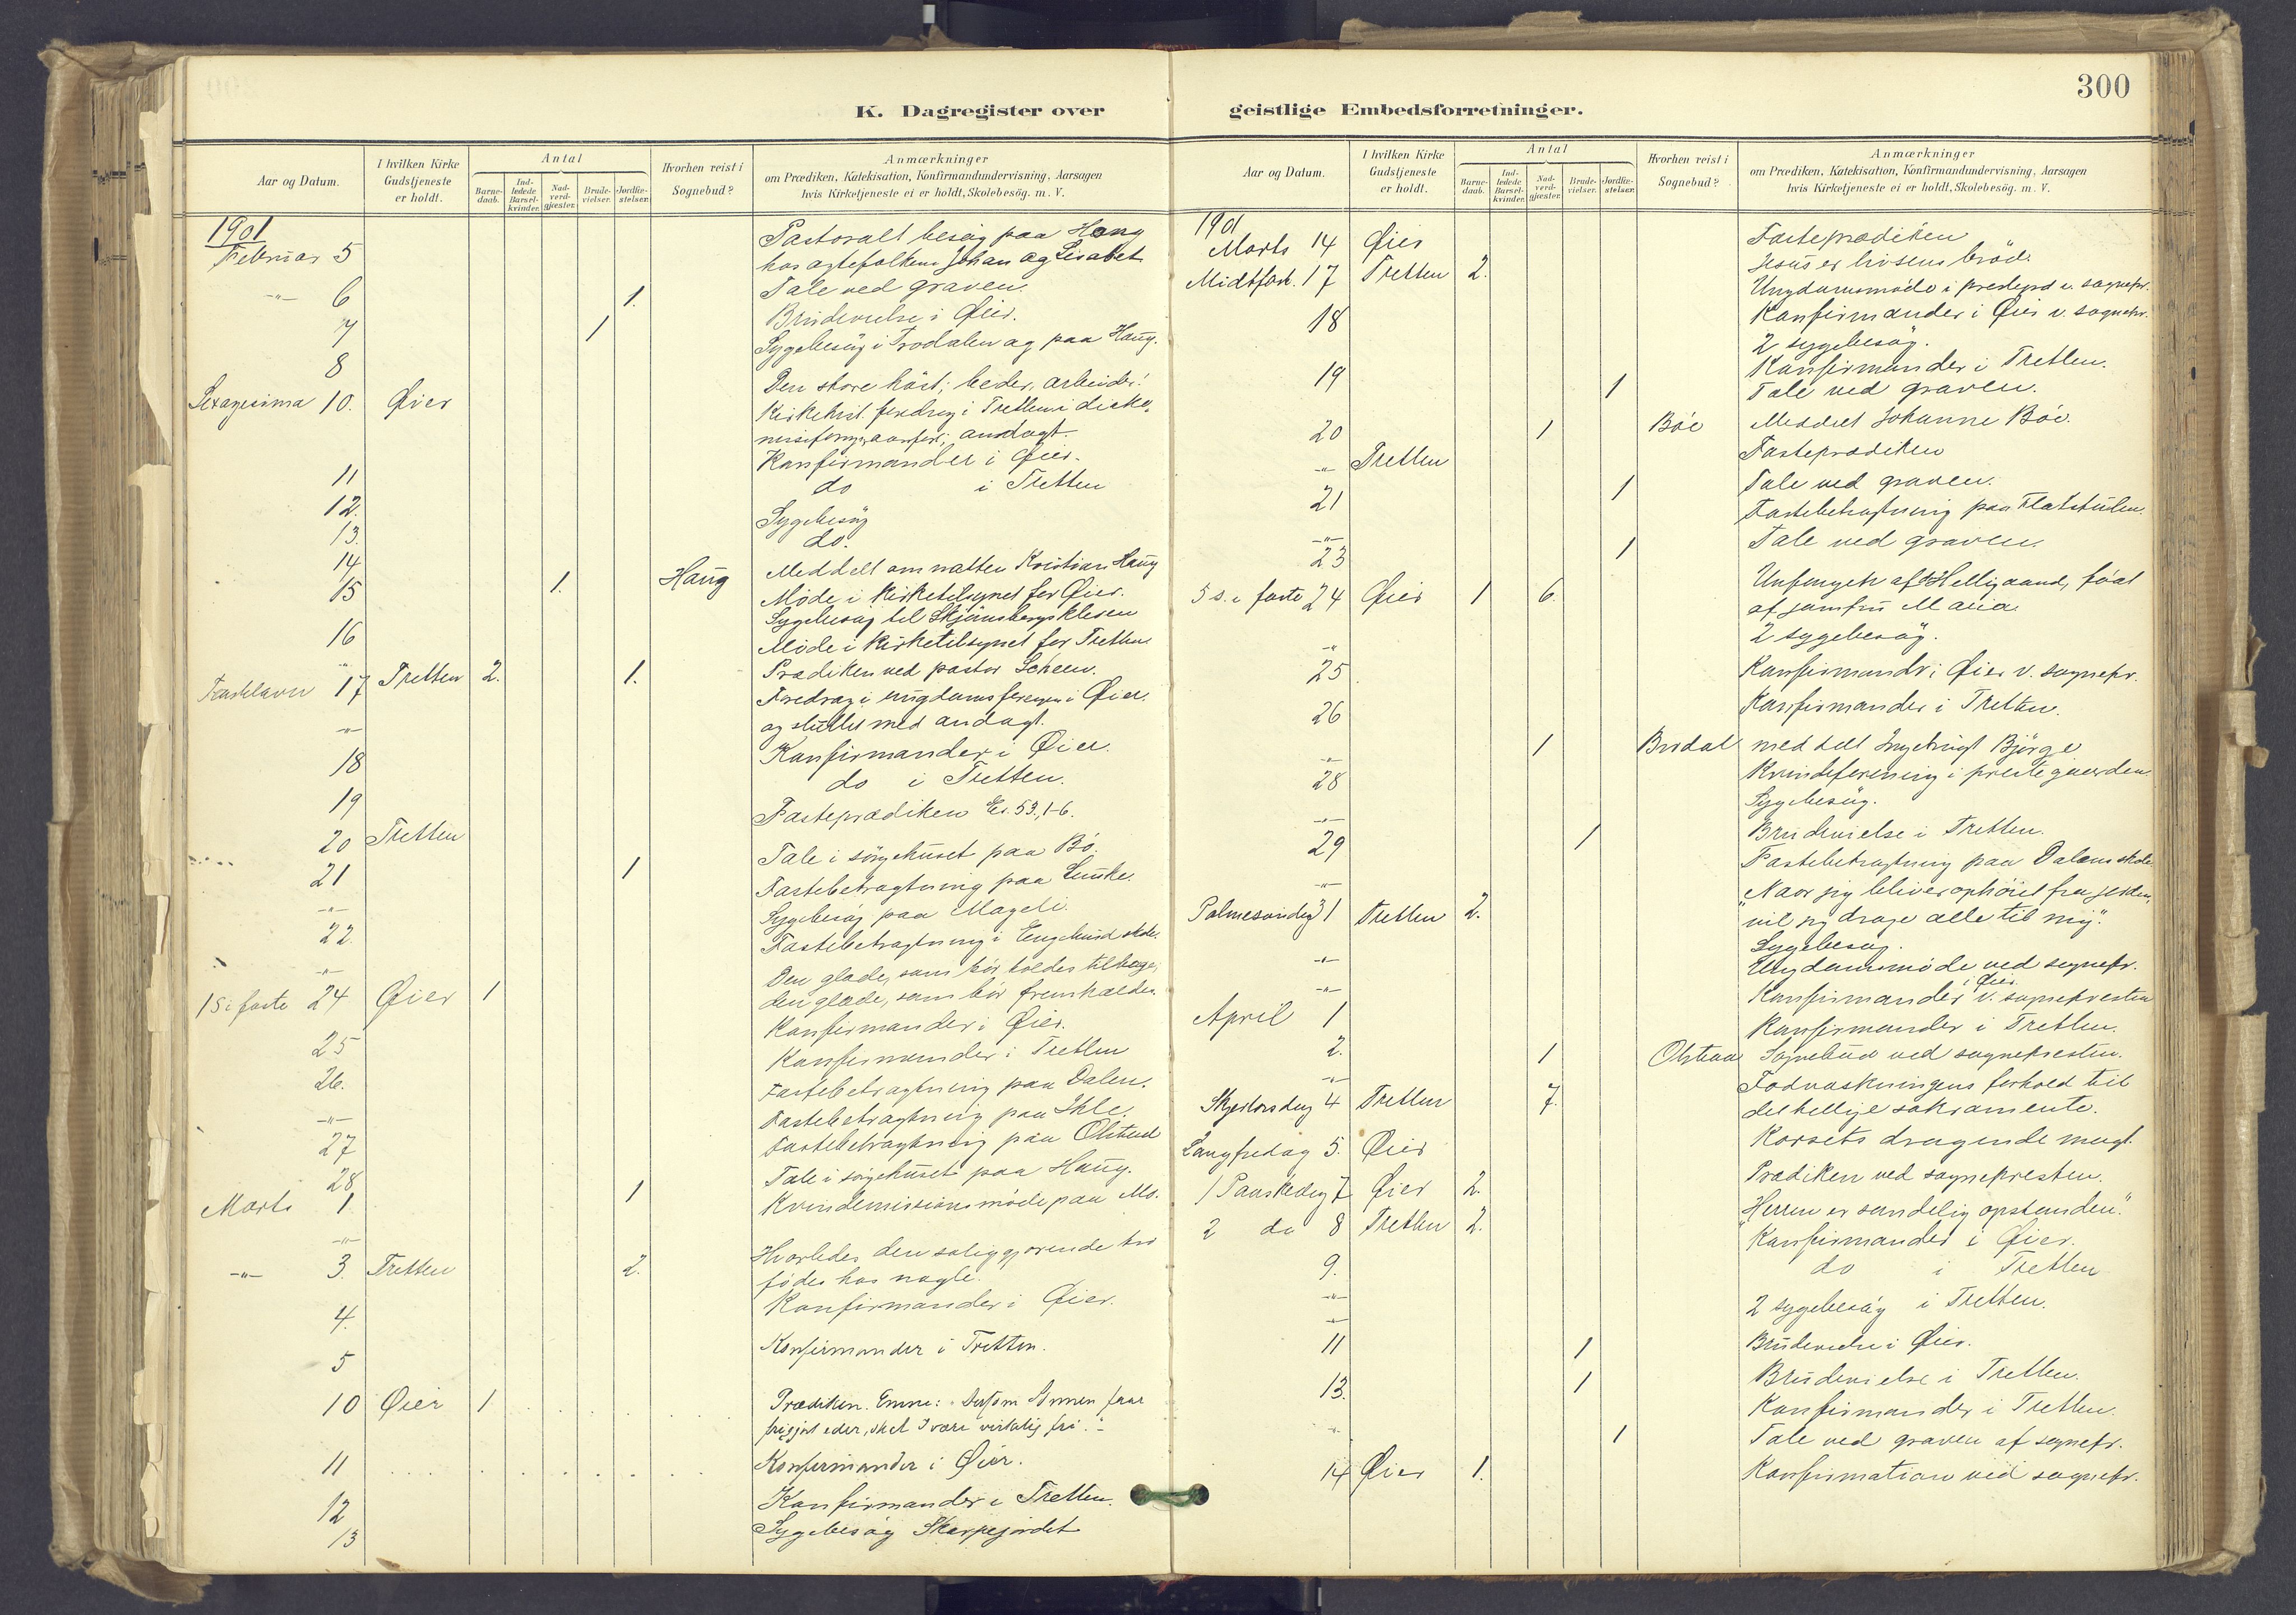 300
K. Dagregister over geistlige Embedsforretninger.
Aar og Datum.
I hvilken Kirke Gudstjeneste er holdt.
Antal
Barne-daab.
Ind-ledede Barsel-kvinder.
Nad-verd-gjæster.
Brude-vielser.
Jordfæ-stelser.
Hvorhen reist i Sognebud?
Anmærkninger
om Prædiken, Katekisation, Konfirmandundervisning, Aarsagen
hvis Kirketjeneste ei er holdt, Skolebesög. m. V.
1901
Februar 5 Pastoralt besøg paa Haug
hos ægtefolkene Johan og Lisabet
-"- 6 1. Tale ved graven.
7 1 Brudevielse i Øier.
8 Sygebesøg i Trodalen og paa Haug.
Sexagesima 10. Øier Den store høst; beder, arbeider!
Kirkehist. foredrag i Tretten
andagt.
11 Konfirmander i Øier.
12. do i Tretten
13. Sygebesøg
14 do.
15 1. Haug Meddelt om natten Kristian Haug
Møde i kirketilsynet for Øier.
16 Sygebesøg til Skjønsbergskleven
-"- Møde i kirketilsynet for Tretten
Fastelavn 17 Tretten 2. 1. Prædiken ved pastor Scheen.
-"- Foredrag i ungdomsforengen i Øier.
og sluttet med andagt.
18 Konfirmander i Øier.
19 do i Tretten.
20 Tretten Fasteprædiken Es. 53, 1-6.
21 1 Tale i sørgehuset paa Bö.
-"- Fastebetragtning paa Lunke.
22. Sygebesøg paa Mageli.
-"- Fastebetragtning i Engelund skole.
1 S i faste 24 Øier 1 Den glæde, som bör holdes tilbage;
den glæde, som bör fremholdes.
25 Konfirmander i Øier.
26. Konfirmander i Tretten
-"- Fastebetragtning paa Dalen.
27 Fastebetragtning paa Ihle.
28 Fastebetragtning paa Olstad
Marts 1 1 Tale i sørgehuset paa Haug.
-"- Kvindemissionsmøde paa Mo.
-"- 3. Tretten 2. Hvorledes den saliggjørende tro
fødes hos nogle.
4. Konfirmander i Øier.
5 Konfirmander i Tretten.
10 Øier 1 Prædiken. Emne: Dersom Sønnen faar
frigjort eder, skal I være virkelig fri.
11 Konfirmander i Øier.
12 Konfirmander i Tretten.
13 Sygebesøg Skarpejordet
Aar og Datum.
I hvilken Kirke Gudstjeneste er holdt.
Antal
Barne-daab.
Ind-ledede Barsel-kvinder.
Nad-verd-gjæster.
Brude-vielser.
Jordfæ-stelser.
Hvorhen reist i Sognebud?
Anmærkninger
om Prædiken, Katekisation, Konfirmandundervisning, Aarsagen
hvis Kirketjeneste ei er holdt, Skolebesög. m. V.
1901
Marts 14 Øier Fasteprædiken
Midtfast. 17 Tretten 2. Jesus er livsens brød.
Ungdomsmøde i prestegd v. sognepr.
18 Konfirmander i Øier v. sognepr.
2 sygebesøg.
19 Konfirmander i Tretten.
1 Tale ved graven.
20 1 Böe Meddelt Johanne Böe.
-"- Tretten Fasteprædiken
21 1 Tale ved graven.
-"- Fastebetragtning paa Flatstulen.
23 1 Tale ved graven.
5 s. i faste 24 Øier 1 6. Unfangen af d Helligaand, född
af jomfru Maria
-"- 2 sygebesøg.
25 Konfirmandr i Øier v. sognepr.
26 Konfirmander i Tretten.
-"- 1 Brodal meddelt Ingebrigt Bjørge
28 Kvindeforening i prestegaarden.
-"- Sygebesøg.
29 1 Brudevielse i Tretten.
-"- Fastebetragtning paa Dalens skole
Palmesøndag 31 Tretten 2. "Naar jeg bliver ophøiet fra jorden,
vil jeg drage alle til mig".
-"- Sygebesøg.
-"- Ungdomsmøde ved sognepr.
April 1 Konfirmander i Øier v. sognepresten
2. Konfirmander i Tretten.
-"- 1 Olstad Sognebud ved sognepresten.
Skjærtorsdag 4 Tretten 7. Fodvaskningens forhold til
det hellige sakramente.
Langfredag 5. Øier Korsets dragende magt.
1 Paaskedag 7 Øier 2. Prædiken ved sognepresten.
2 do 8 Tretten 2. "Herren er sandelig opstanden."
9. Konfirmander i Øier.
-"- do i Tretten
-"- 2 sygebesøg i Tretten.
11 1 Brudevielse i Øier.
13. 1 Brudevielse i Tretten.
Konfirmander i Tretten.
-"- 1 Tale ved graven af sognepr.
14 Øier 1. Konfirmation ved sognepr.